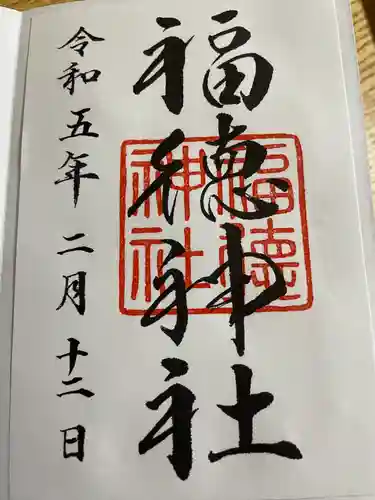 福徳神社
福徳神社
令和五年二月十二日